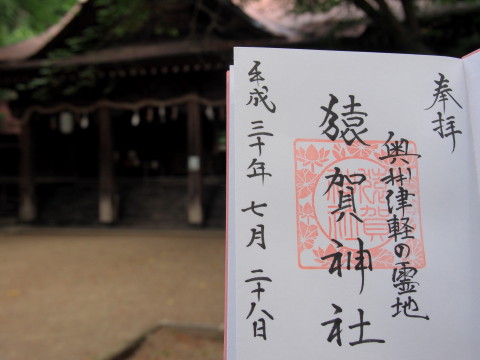 奉拝
奥州津軽の霊地
猿賀神社
平成三十年七月二十八日